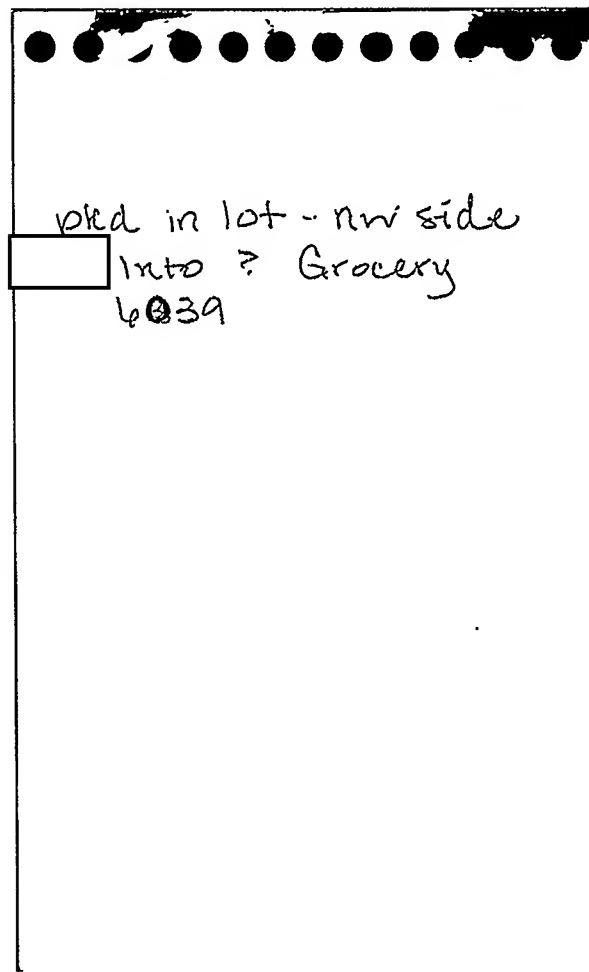 pkd in lot - nw side
Into ? Grocery
6339